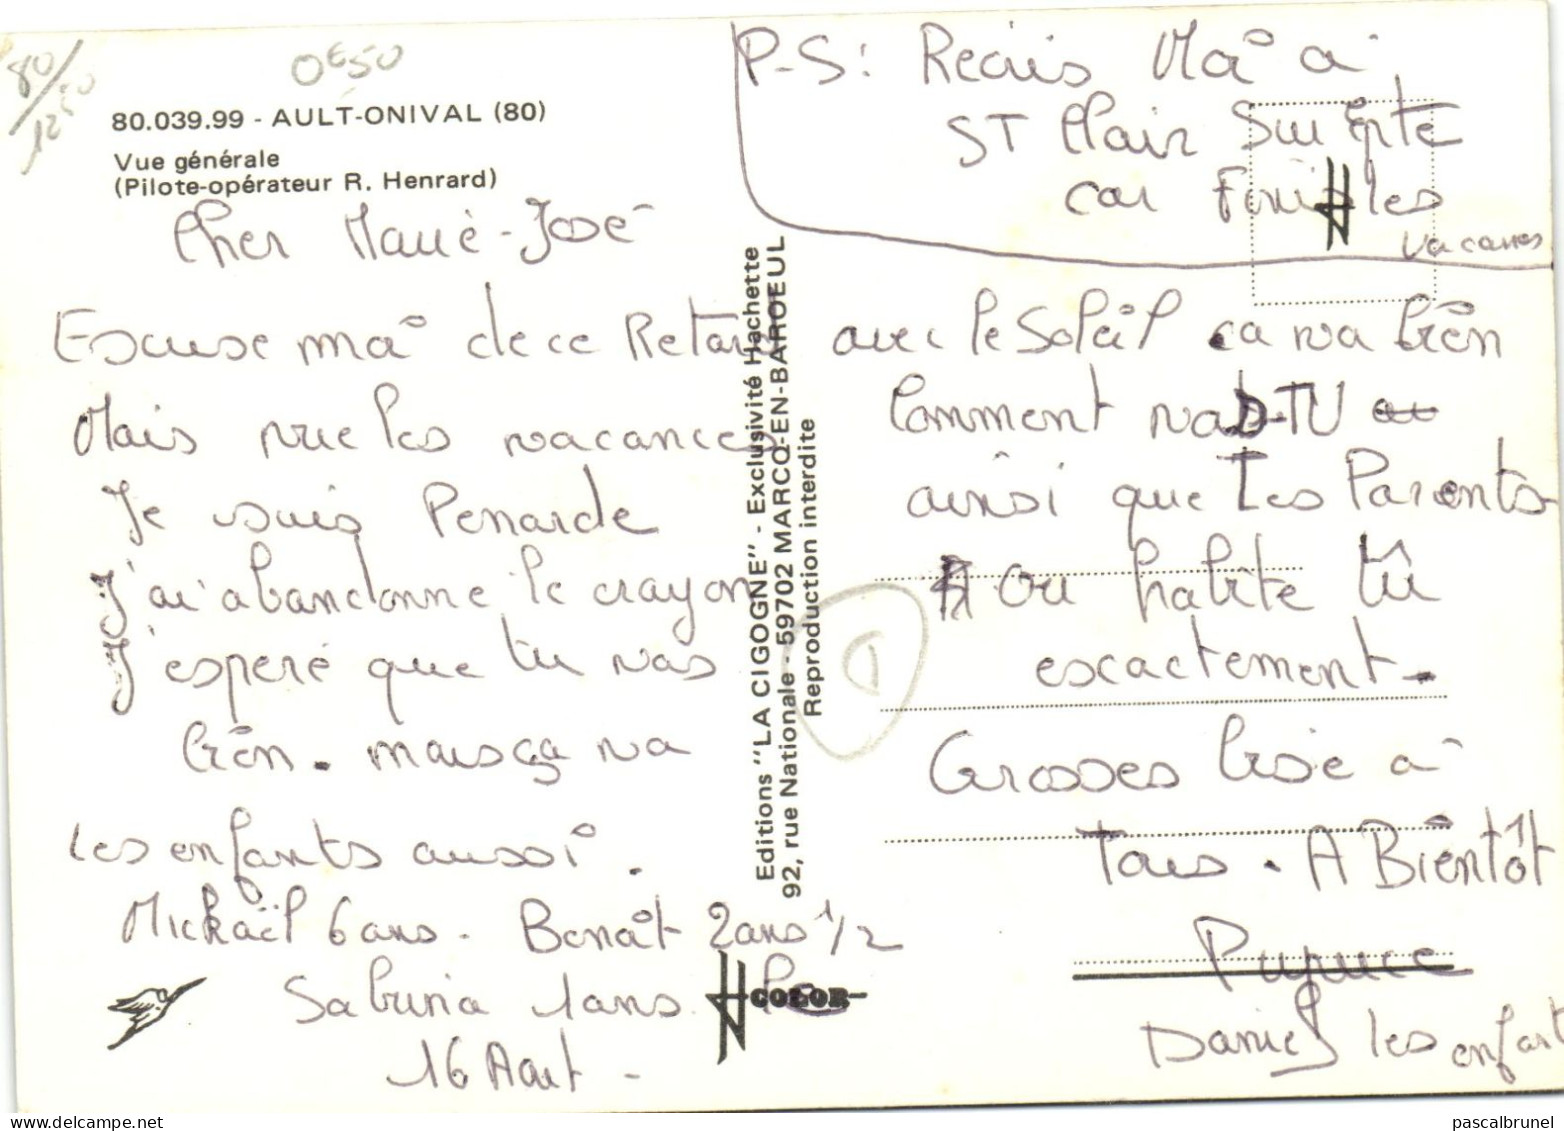 80/
1250
0€50
80.039.99 - AULT-ONIVAL (80)
Vue générale
(Pilote-opérateur R. Henrard)
Cher Marie-José
Escuse moi de ce Retard
Mais vue les vacances
Je suis Penarde
J'ai abandonne le crayon
J'esperé que tu vas
bien. mais ça va
les enfants aussi.
Mickaël 6 ans. Benoît 2 ans 1/2
Sabrina 1 ans. le
16 Aout -
Editions "LA CIGOGNE" - Exclusivité Hachette
92, rue Nationale - 59702 MARCQ-EN-BAROEUL
Reproduction interdite
COLOR
P-S: Recris Moi a
ST Clair Sur Epte
car Finis les
vacances
avec le Soleil ca va bien
Comment vas-TU
ainsi que Tes Parents
ou habite tu
escactement.
Grosses bise à
Tous. A Bientôt
Pupuce
Daniel les enfants
pascalbrunel